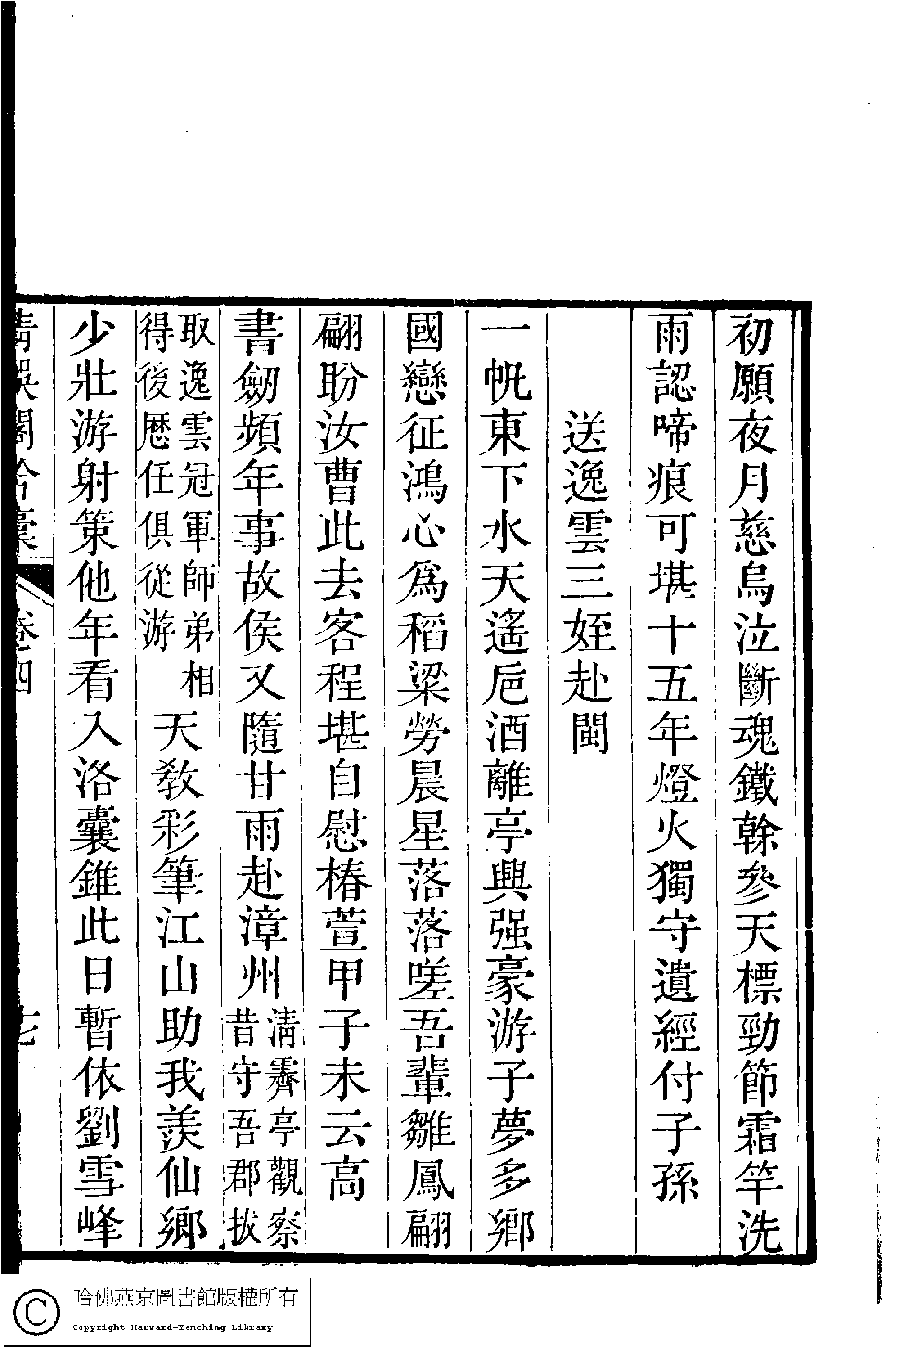 初願夜月慈烏泣斷魂鐵榦參天標勁節霜竿洗
雨認啼痕可堪十五年燈火獨守遺經付子孫
送逸雲三姪赴閩
一帆東下水天遙卮酒離亭興强豪游子夢多鄉
國戀征鴻心爲稻粱勞晨星落落嗟吾輩雛鳳翩
翩盼汝曹此去客程堪自慰椿萱甲子未云高
書劒頻年事故侯又隨甘雨赴漳州
清霽亭觀察
昔守吾郡拔
取逸雲冠軍師弟相
得後歷任俱從游
天敎彩筆江山助我羨仙鄉
少壯游射策他年看入洛囊錐此日暫依劉雪峰
卷四
哈佛燕京圖書館版權所有
Copyright Harvard-Yenching Library